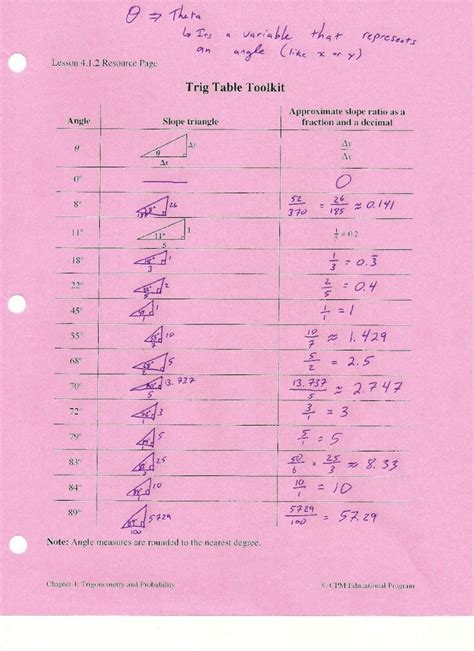 θ ⇒ Theta
↳ Its a variable that represents
an angle (like x or y)
Lesson 4.1.2 Resource Page
Trig Table Toolkit
Angle Slope triangle Approximate slope ratio as a fraction and a decimal
θ θ Δy Δx Δy/Δx
0° 0
8° 26 52/370 = 26/185 ≈ 0.141
11° 11° 1 5 1/5 = 0.2
18° 1 3 1/3 = 0.3̅
22° 2 5 2/5 = 0.4
45° 1 1/1 = 1
55° 10 7 10/7 ≈ 1.429
68° 5 2 5/2 = 2.5
70° 13.737 5 13.737/5 ≈ 2.747
72° 3 3/1 = 3
79° 5 5/1 = 5
83° 25 50/6 = 25/3 ≈ 8.33
84° 10 10/1 = 10
89° 5729 100 5729/100 = 57.29
Note: Angle measures are rounded to the nearest degree.
Chapter 4: Trigonometry and Probability © CPM Educational Program